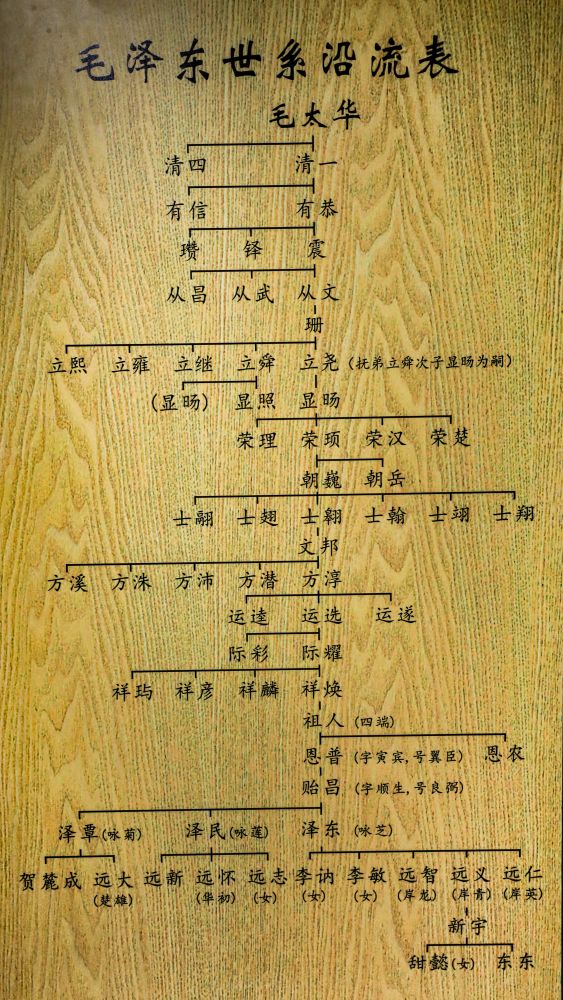 毛泽东世系沿流表
毛太华
清四 清一
有信 有恭
瓒 铎 震
从昌 从武 从文
珊
立熙 立雍 立继 立舜 立尧 (抚弟立舜次子显旸为嗣)
(显旸) 显照 显旸
荣理 荣顼 荣汉 荣楚
朝巍 朝岳
士翮 士翅 士翱 士翰 士翊 士翔
文邦
方溪 方洙 方沛 方潜 方淳
运逵 运选 运遂
际彩 际耀
祥玙 祥彦 祥麟 祥焕
祖人 (四端)
恩普 (字寅宾,号翼臣) 恩农
贻昌 (字顺生,号良弼)
泽覃(咏菊) 泽民(咏莲) 泽东 (咏芝)
贺麓成 远大 远新 远怀 远志 李讷 李敏 远智 远义 远仁
(楚雄) (华初) (女) (女) (女) (岸龙) (岸青) (岸英)
新宇
甜懿(女) 东东